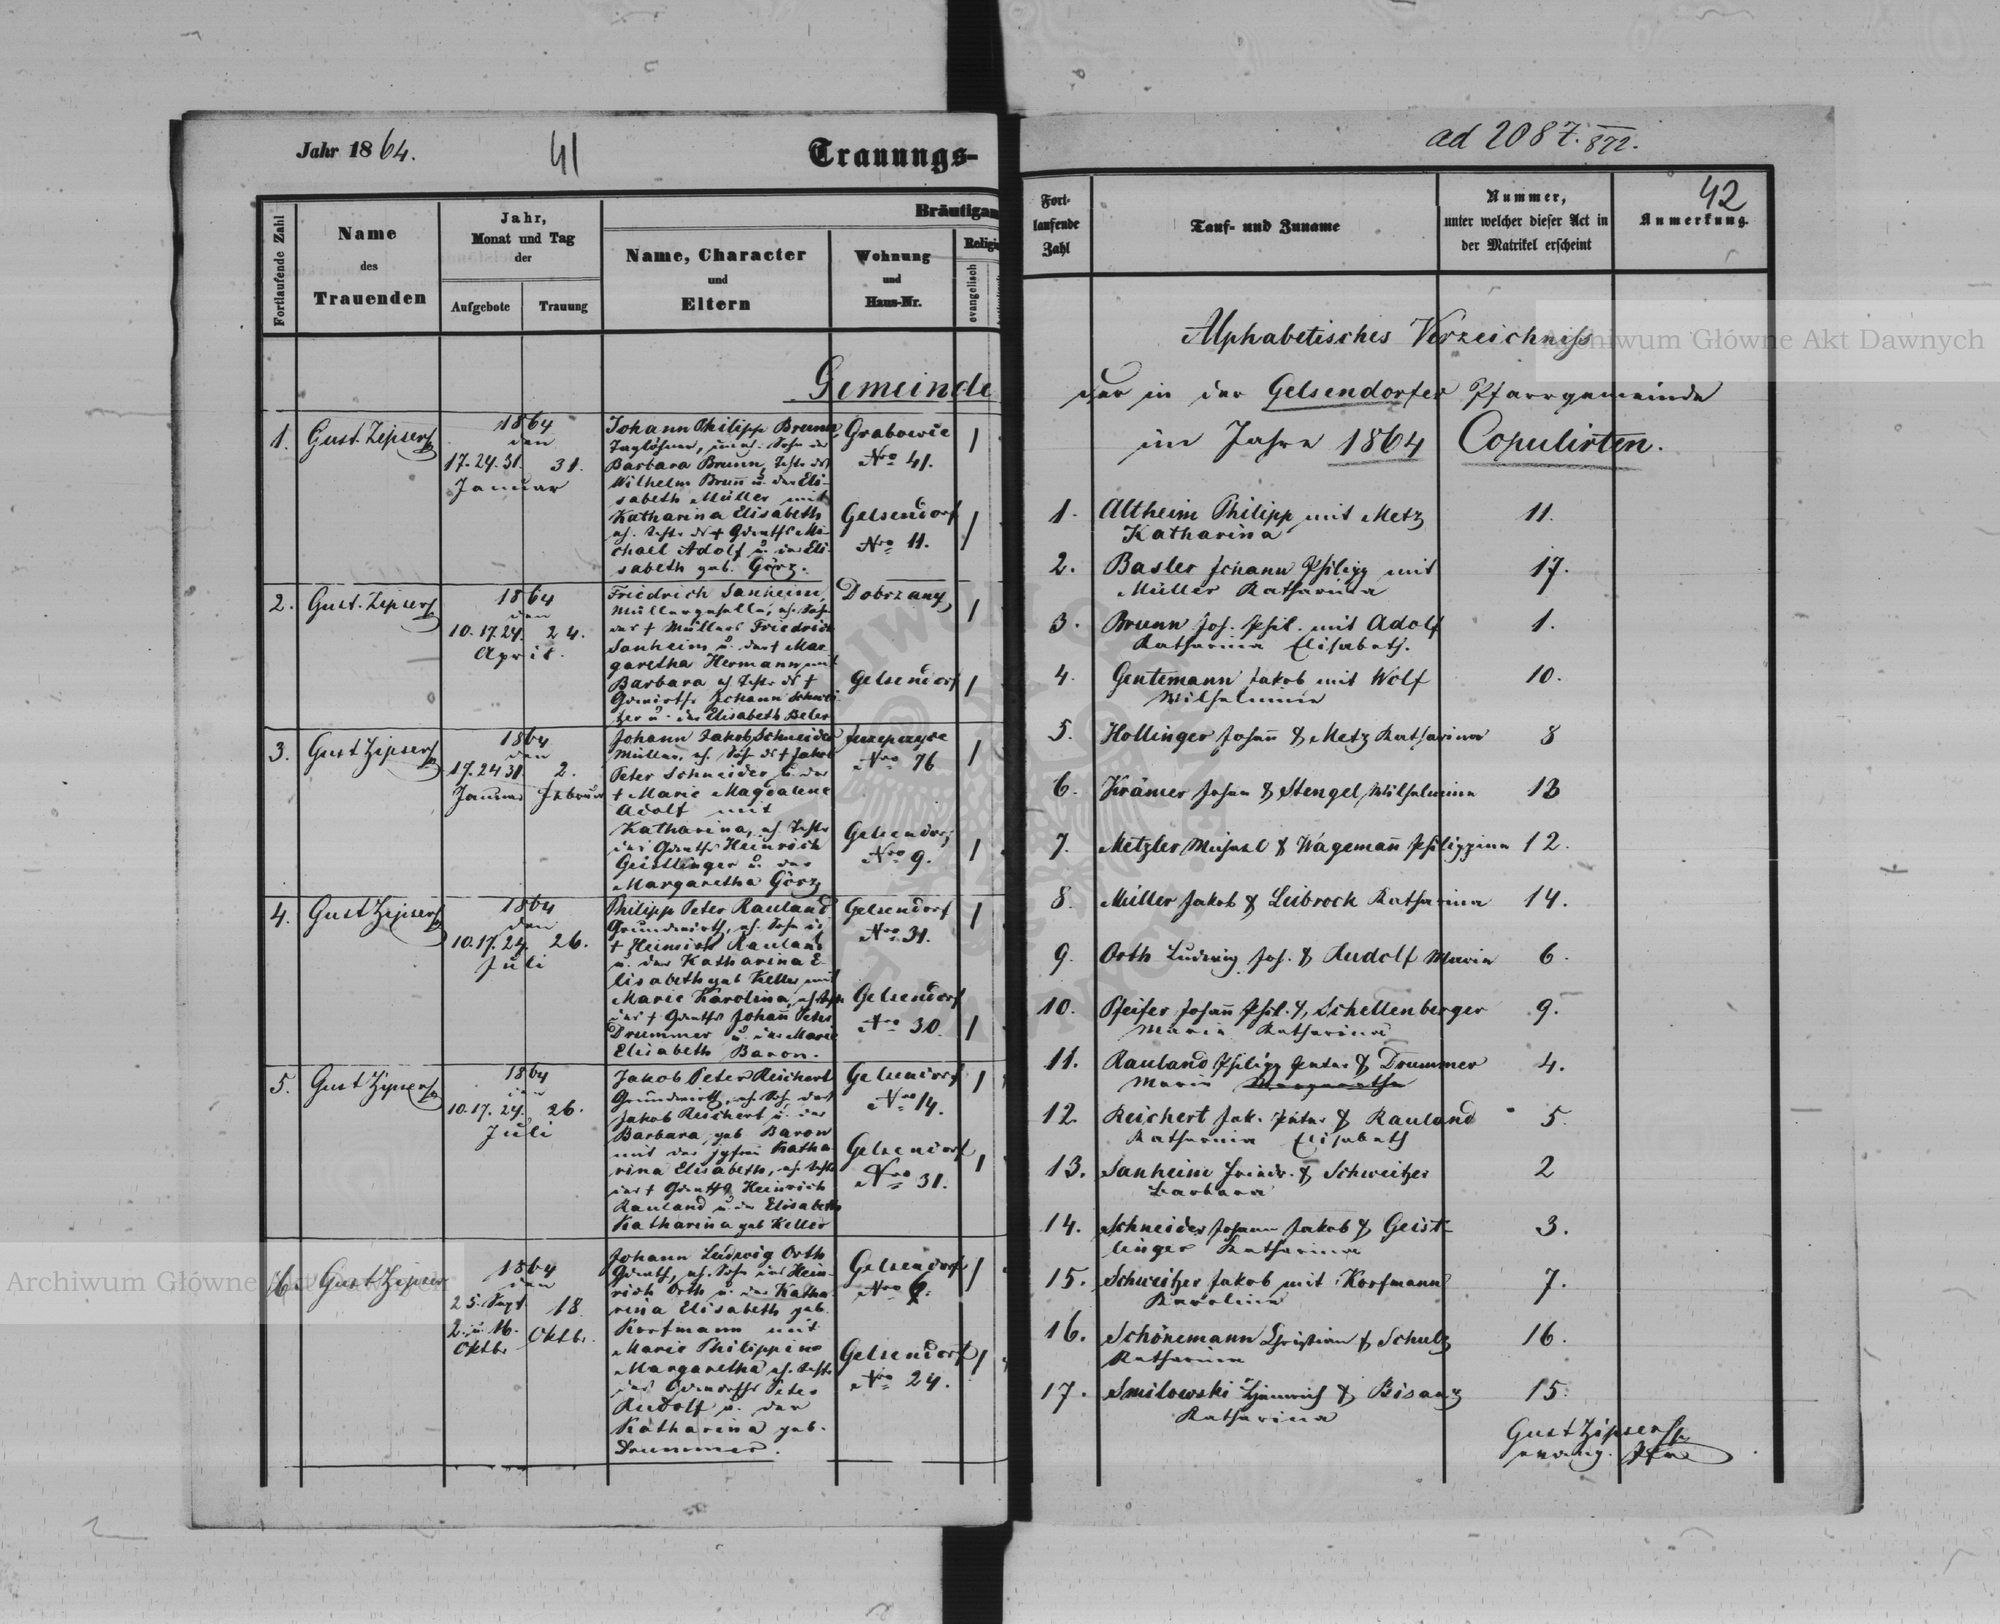 Jahr 1864.
41
Trauungs-
Fortlaufende Zahl
Name
des
Trauenden
Jahr,
Monat und Tag
der
Aufgebote
Trauung
Bräutigam
Name, Character
und
Eltern
Wohnung
und
Haus-Nr.
Religi
evangelisch
Gemeinde
1. Gust. Zipser
1864
den
17. 24. 31. 31.
Januar
Johann Philipp Brunn
Taglöhner, Sohn der
Barbara Brunn, Tchtr des
Wilhelm Brunn u. der Eli-
sabeth Müller mit
Katharina Elisabeth
eh. Tchtr des † Grdwths Mi-
chael Adolf u. der Eli-
sabeth geb. Görz.
Grabowie
Nro 41.
Gelsendorf
Nro 11.
2. Gust. Zipser
1864
den
10. 17. 24. 24.
April.
Friedrich Sanheim,
Müllergeselle, eh. Sohn
des † Müllers Friedrich
Sanheim u. der † Mar
garetha Hermann mit
Barbara eh. Tchtr des †
Grdwirths Johann Schwei
tzer u. der Elisabeth Beler
Dobrzany
Gelsendorf
3. Gust Zipser
1864
den
17. 24 31. 2.
Januar Februar
Johann Jakob Schneider
Müller, eh. Sohn des † Jakob
Peter Schneider u. der
† Marie Magdalena
Adolf mit
Katharina, eh. Tchtr
des Grdwths Heinrich
Geistlinger u. der
Margaretha Görz
Nro 76
Gelsendorf
Nro 9.
4. Gust Zipser
1864
den
10. 17. 24. 26.
Juli
Philipp Peter Rauland
Grundwirth, eh. Sohn des
† Heinrich Rauland
u. der Katharina E-
lisabeth geb Keller mit
Marie Karolina, eh. Tchtr
des † Grdwths Johann Peter
Drummer u. der Marie
Elisabeth Baron.
Gelsendorf
Nro 31.
Gelsendorf
Nro 30.
5. Gust Zipser
1864
den
10. 17. 24. 26.
Juli
Jakob Peter Reichert
Grundwirth, eh. Sohn des
Jakob Reichert u. der
Barbara geb Baron
mit der Jgfrau Katha
rina Elisabeth, eh. Tchtr
des † Grdwths Heinrich
Rauland u. der Elisabeth
Katharina geb Keller
Gelsendorf
Nro 14.
Gelsendorf
Nro 31.
6. Gust Zipser
1864
den
25. Sept 18
2. u 16. Oktbr.
Oktbr
Johann Ludwig Orth
Grdwth, eh. Sohn des Hein-
rich Orth u. der Katha-
rina Elisabeth geb.
Korfmann mit
Marie Philippine
Margaretha eh. Tchtr
des Grdwths Peter
Rudolf u. der
Katharina geb.
Drummer.
Gelsendorf
Nro 6.
Gelsendorf
Nro 24.
ad 2087. 872.
42
Fort-
laufende
Zahl
Tauf- und Zuname
Nummer,
unter welcher dieser Act in
der Matrikel erscheint
Anmerkung.
Alphabetisches Verzeichniss
der in der Gelsendorfer Pfarrgemeinde
im Jahre 1864 Copulirten.
1. Altheim Philipp mit Metz 11.
Katharina
2. Basler Johann Philipp mit 17.
Müller Katharina
3. Brunn Joh. Phil. mit Adolf 1.
Katharina Elisabeth.
4. Gentemann Jakob mit Wolf 10.
Wilhelmine
5. Hollinger Johann & Metz Katharina 8
6. Krämer Johann & Stengel Wilhelmine 13
7. Metzler Michael & Wagemann Philippina 12.
8. Müller Jakob & Leibrock Katharina 14.
9. Orth Ludwig Joh. & Rudolf Maria 6.
10. Pfeifer Johann Phil. & Schellenberger 9.
Maria Katharina
11. Rauland Philipp Peter & Drummer 4.
Marie Margaretha
12. Reichert Jak. Peter & Rauland 5.
Katharina Elisabeth
13. Sanheim Friedr. & Schweitzer 2
Barbara
14. Schneider Johann Jakob & Geist- 3.
linger Katharina
15. Schweitzer Jakob mit Korfmann 7.
Karoline
16. Schönemann Christian & Schulz 16.
Katharina
17. Smilowski Heinrich & Bisanz 15.
Katharina
Gust Zipser
evang. Pfr
Archiwum Główne Akt Dawnych
Archiwum Główne Akt Dawnych